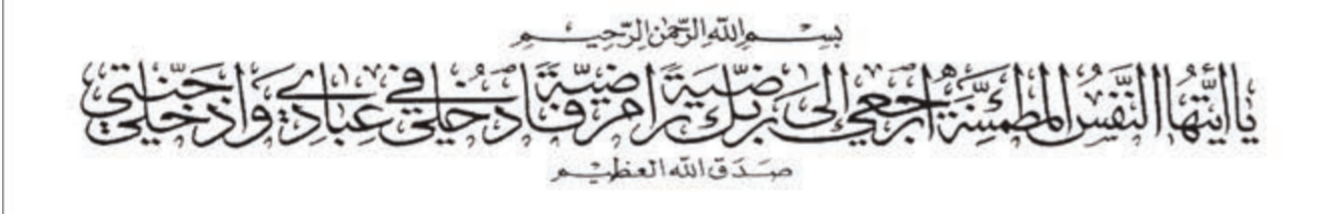 بِسْمِ اللهِ الرَّحْمٰنِ الرَّحِيْمِ
يَا أَيَّتُهَا النَّفْسُ الْمُطْمَئِنَّةُ ارْجِعِي إِلَى رَبِّكِ رَاضِيَةً مَرْضِيَّةً فَادْخُلِي فِي عِبَادِي وَادْخُلِي جَنَّتِي
صَدَقَ اللهُ الْعَظِيْمِ